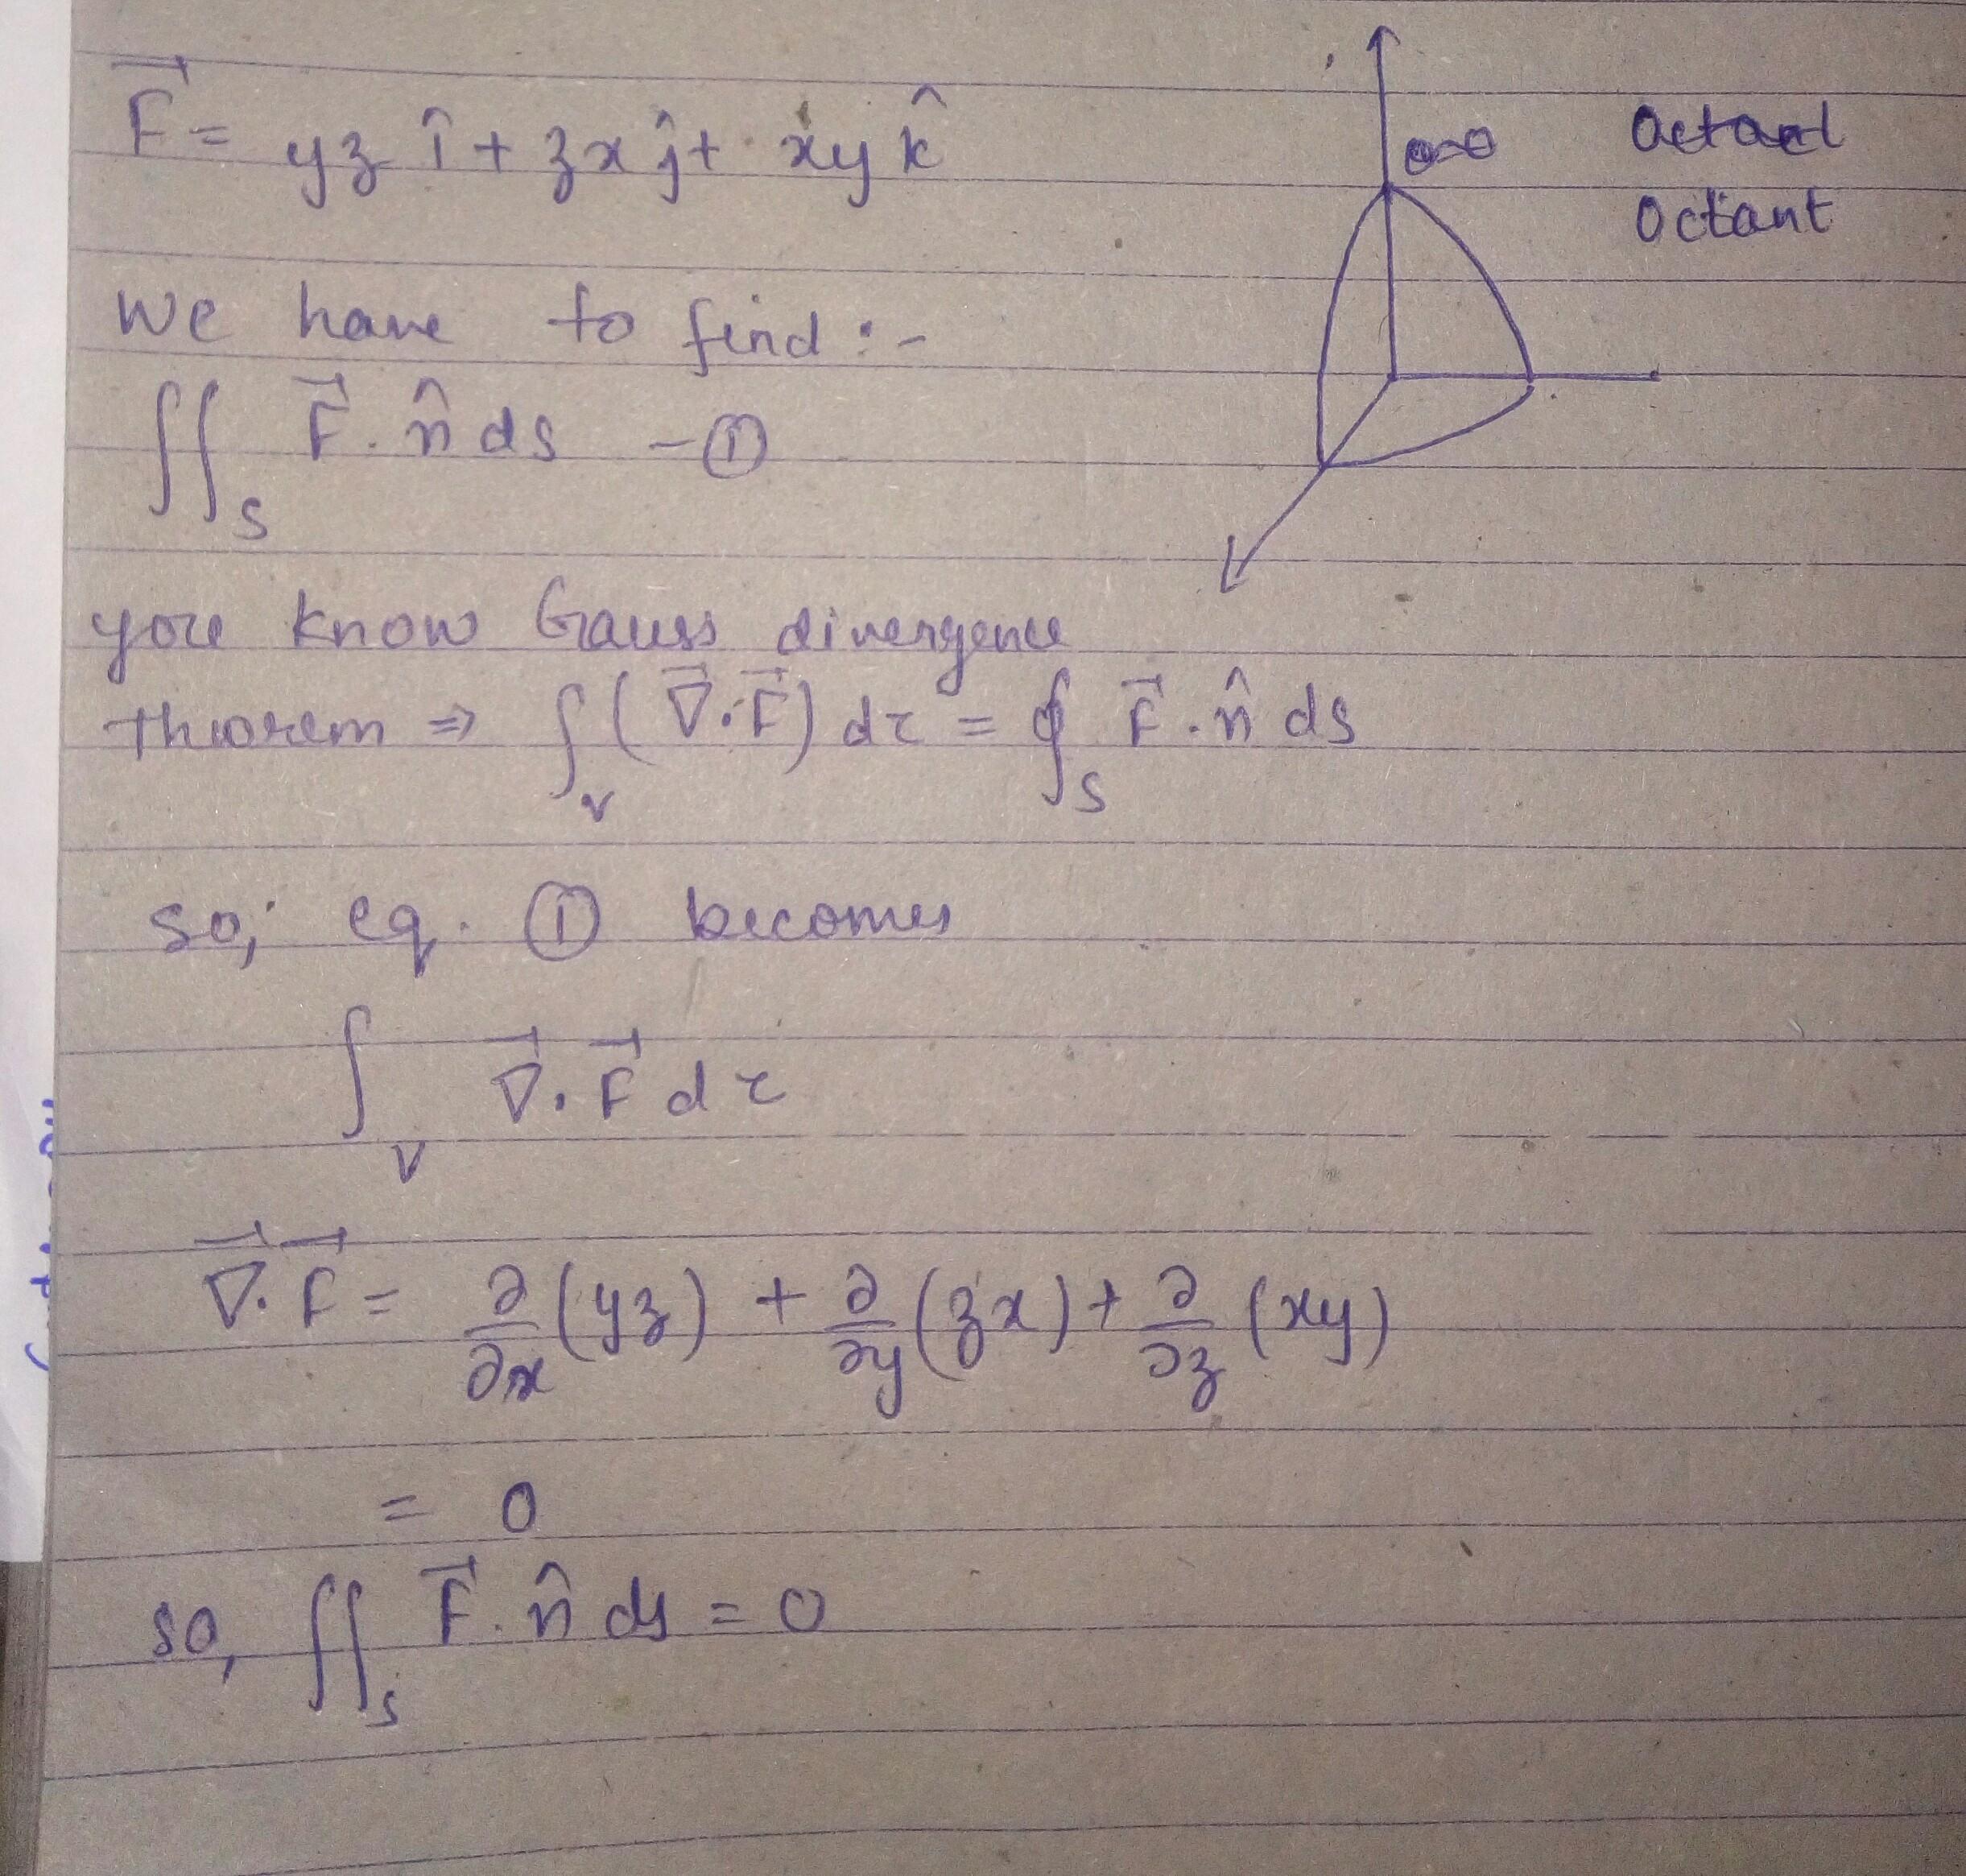 F⃗ = yz î + zx ĵ + xy k̂
Octant
we have to find :-
∬_S F⃗ . n̂ ds - ①
you know Gauss divergence
theorem ⇒ ∫_v (∇⃗.F⃗) dτ = ∮_S F⃗ . n̂ ds
so, eq. ① becomes
∫_V ∇⃗.F⃗ dτ
∇⃗.F⃗ = ∂/∂x (yz) + ∂/∂y (zx) + ∂/∂z (xy)
= 0
so, ∬_S F⃗ . n̂ ds = 0